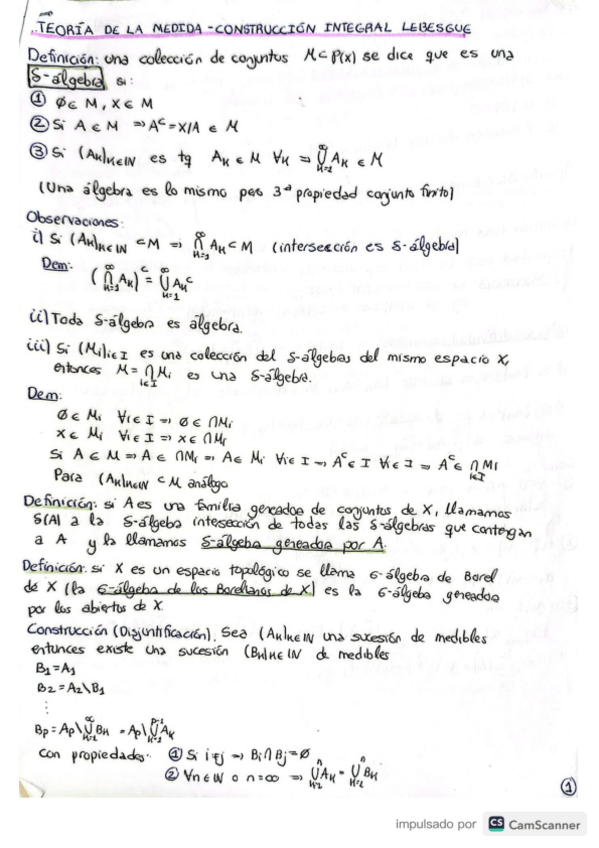 TEORÍA DE LA MEDIDA - CONSTRUCCIÓN INTEGRAL LEBESGUE
Definición: una colección de conjuntos M⊂P(X) se dice que es una
δ-álgebra si:
① ∅∈M, X∈M
② Si A∈M ⇒ Aᶜ=X/A ∈ M
③ Si (Aₖ)ₖ∈ℕ es tq Aₖ∈M ∀k ⇒ ⋃ₖ₌₁^∞ Aₖ ∈ M
(Una álgebra es lo mismo pero 3ª propiedad conjunto finito)
Observaciones:
i) Si (Aₖ)ₖ∈ℕ ⊂M ⇒ ⋂ₖ₌₁^∞ Aₖ⊂M (intersección es δ-álgebra)
Dem:
(⋂ₖ₌₁^∞ Aₖ)ᶜ = ⋃ₖ₌₁^∞ Aₖᶜ
ii) Toda δ-álgebra es álgebra.
iii) Si (Mᵢ)ᵢ∈I es una colección del δ-álgebas del mismo espacio X,
entonces M = ⋂ᵢ∈I Mᵢ es una δ-álgebra.
Dem:
∅∈ Mᵢ ∀i∈I ⇒ ∅∈ ⋂Mᵢ
X∈ Mᵢ ∀i∈I ⇒ X∈ ⋂Mᵢ
Si A∈M ⇒ A∈ ⋂Mᵢ ⇒ A∈ Mᵢ ∀i∈I ⇒ Aᶜ∈ I ∀i∈I ⇒ Aᶜ∈ ⋂ᵢ∈I Mᵢ
Para (Aₖ)ₖ∈ℕ ⊂M análogo
Definición: si A es una familia generadora de conjuntos de X, llamamos
δ(A) a la δ-álgebra intersección de todas las δ-álgebras que contengan
a A y la llamamos δ-álgebra generada por A.
Definición: si X es un espacio topológico se llama σ-álgebra de Borel
de X (la σ-álgebra de los Borelianos de X) es la σ-álgebra generada
por los abiertos de X.
Construcción (Disjuntificación). Sea (Aₖ)ₖ∈ℕ una sucesión de medibles
entonces existe una sucesión (Bₖ)ₖ∈ℕ de medibles
B₁=A₁
B₂=A₂\B₁
⋮
Bₚ=Aₚ\⋃ₖ₌₁^∞ Bₖ = Aₚ\⋃ₖ₌₁^{p-1} Aₖ
con propiedades: ① Si i≠j ⇒ Bᵢ⋂Bⱼ=∅
② ∀n∈ℕ o n=∞ ⇒ ⋃ₖ₌₁^n Aₖ = ⋃ₖ₌₁^n Bₖ
①
impulsado por CS CamScanner